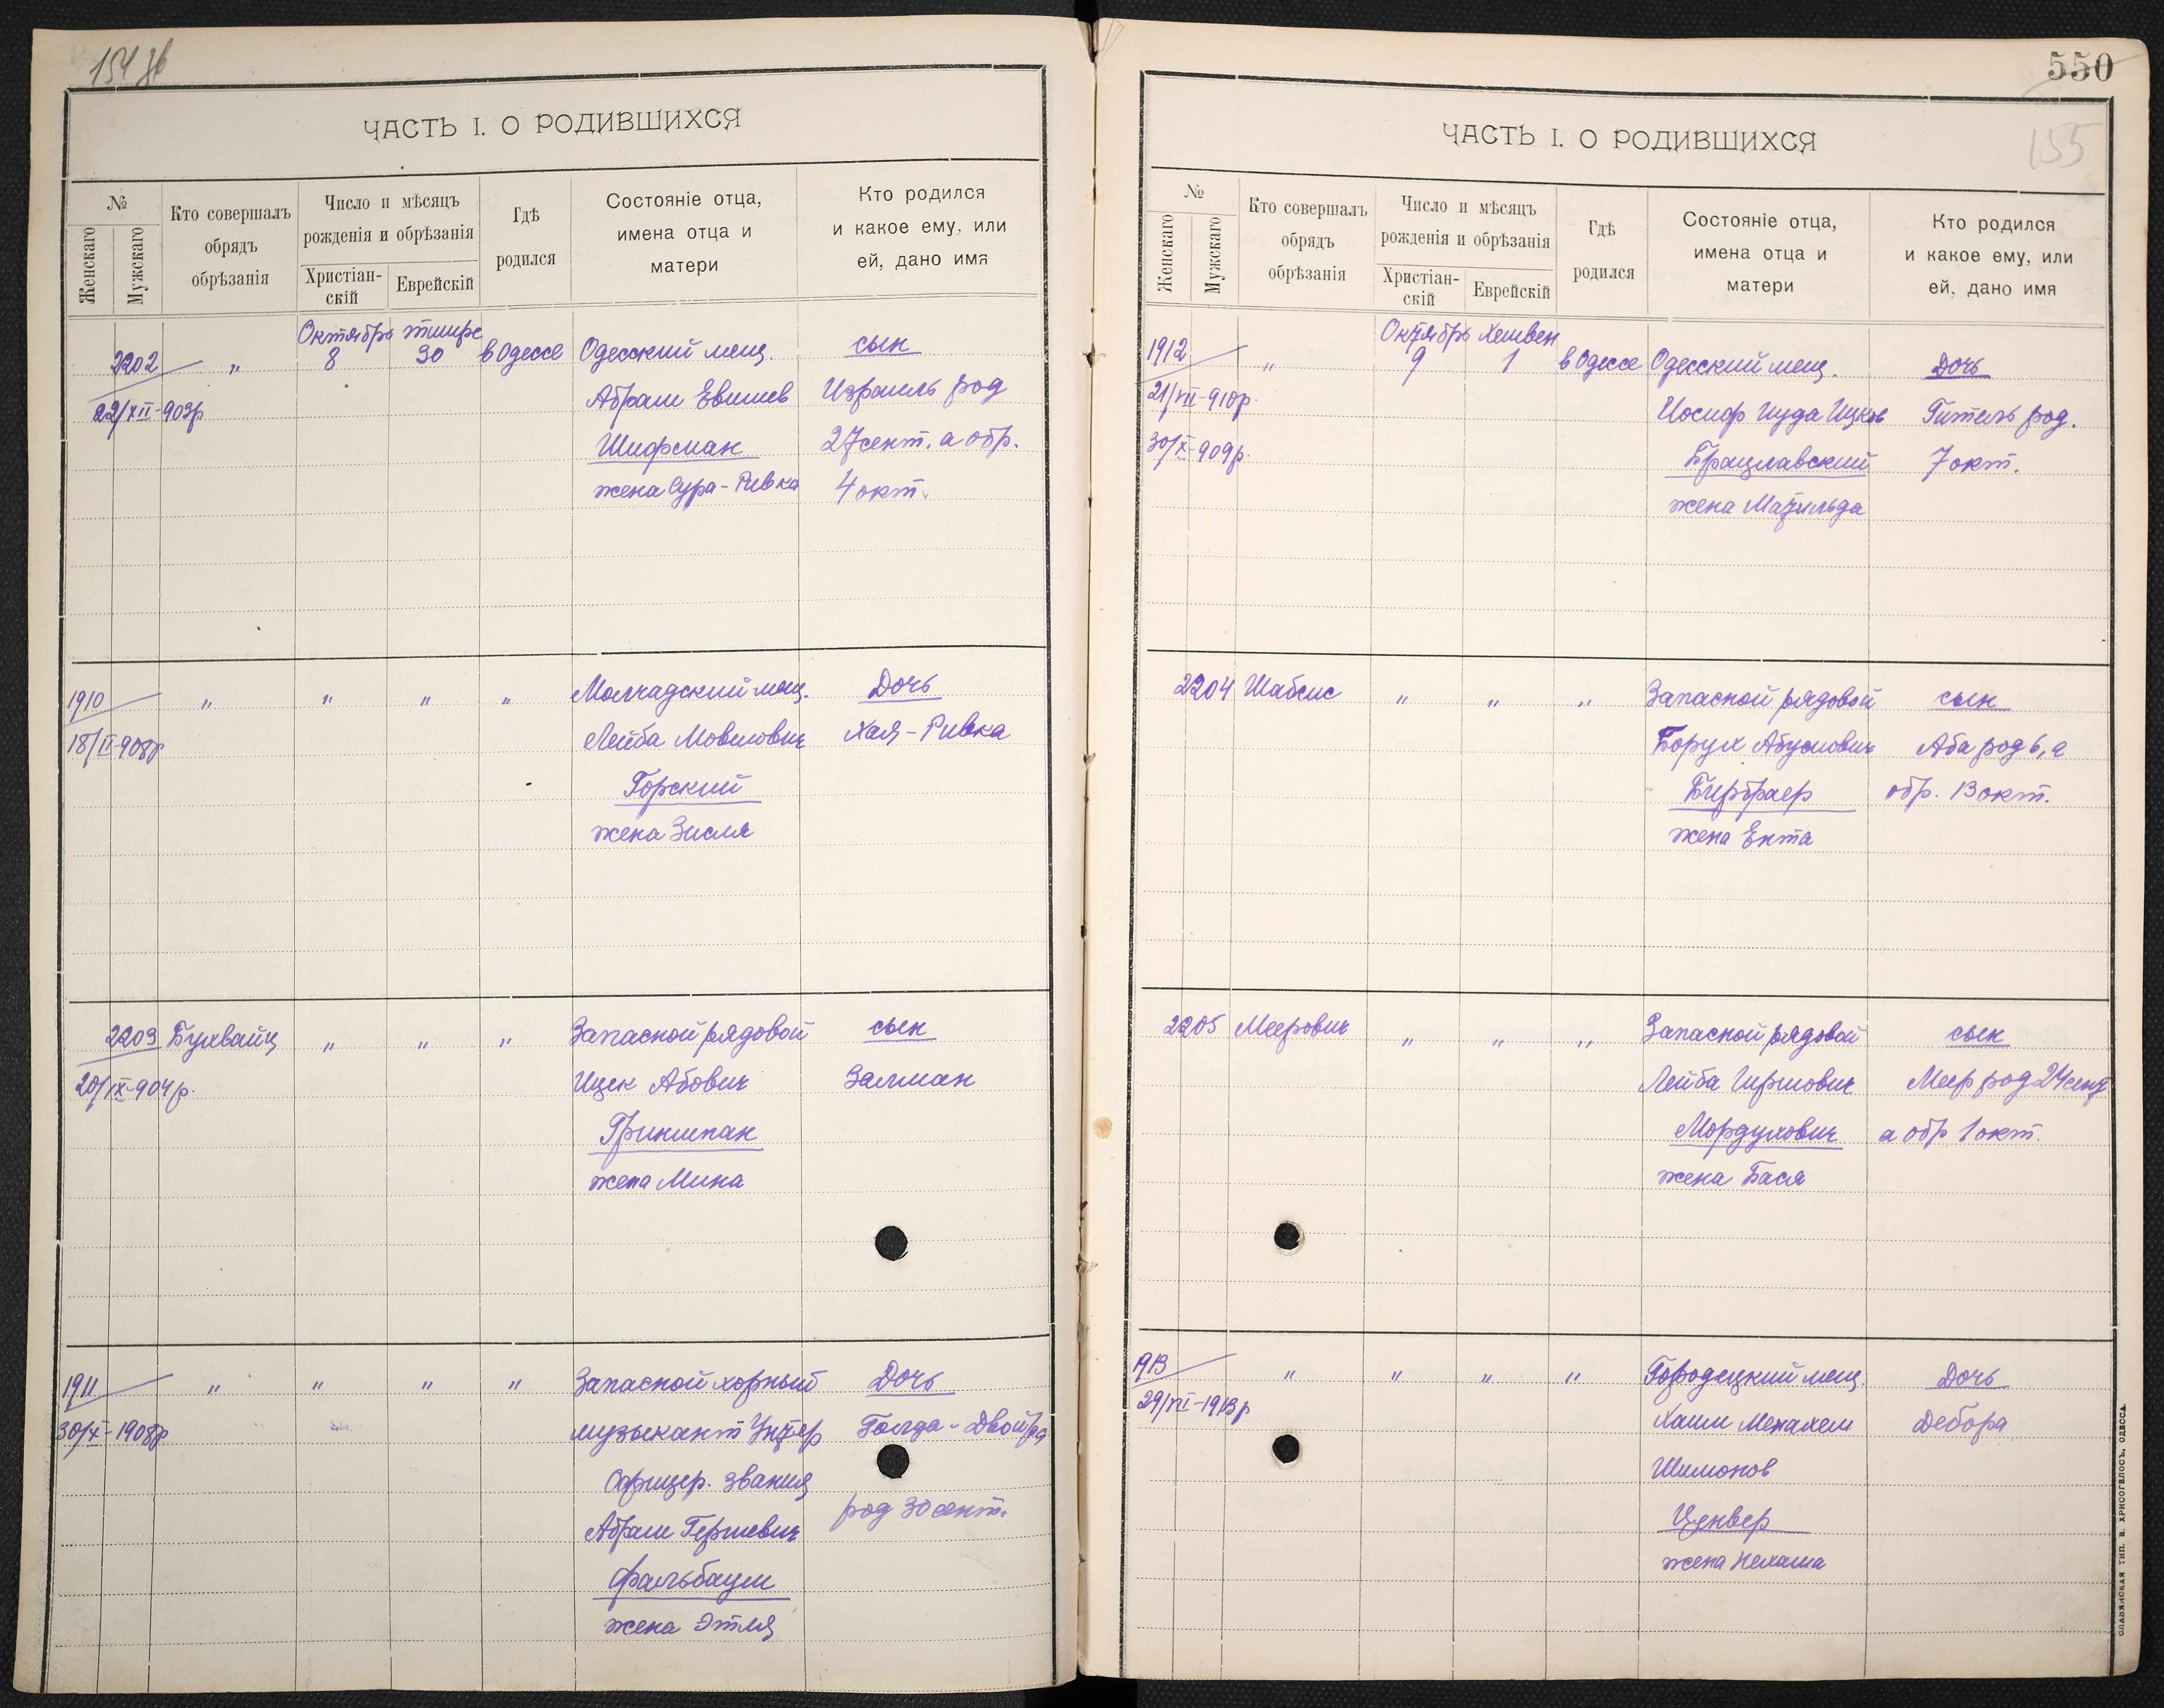 550
155
ЧАСТЬ I. О РОДИВШИХСЯ
№
Женскаго
Мужскаго
Кто совершалъ
обрядъ
обрѣзанія
Число и мѣсяцъ
рожденія и обрѣзанія
Христіан-
скій
Еврейскій
Гдѣ
родился
Состояніе отца,
имена отца и
матери
Кто родился
и какое ему, или
ей, дано имя
Октябрь тишре
2202 " 8 30 в Одессе Одесский мещ. сын
22/XII-903р Абрам Евшиев Израиль род
Шифман 27 сент. а обр.
жена Сура-Ривка 4 окт.
1910 " " " " Молчадский мещ. Дочь
18/II-908р Лейба Мовшович Хая-Ривка
Горский
жена Зисля
2203 Бухвайц " " " Запасной рядовой сын
20/IX-904р. Ицек Абович Залман
Гриншпан
жена Мина
1911 " " " " Запасной хорный Дочь
30/X-1908р музыкант Унтер Голда-Двойра
Офицер. звания
род 30 сент.
Абрам Гершевич
Фальбаум
жена Этля
ЧАСТЬ I. О РОДИВШИХСЯ
№
Женскаго
Мужскаго
Кто совершалъ
обрядъ
обрѣзанія
Число и мѣсяцъ
рожденія и обрѣзанія
Христіан-
скій
Еврейскій
Гдѣ
родился
Состояніе отца,
имена отца и
матери
Кто родился
и какое ему, или
ей, дано имя
Октябрь Хешвен
1912 " 9 1 в Одессе Одесский мещ. Дочь
21/VII-910р. Иосиф Иуда Ицков Гитель род.
30/X-909р. Брацлавский 7 окт.
жена Матильда
2204 Шабсис " " " Запасной рядовой сын
Борух Абусиович Аба род 6, а
Бирбраер обр. 13 окт.
жена Ента
2205 Меерович " " " Запасной рядовой сын
Лейба Гиршович Меер род 24 сент
Мордухович а обр 1 окт.
жена Бася
1913 " " " " Городецкий мещ. Дочь
29/VII-1913р Хаим Менахем Дебора
Шимонов
Ценвер
жена Нехама
СЛАВЯНСКАЯ ТИП. Н. ХРИСОГЕЛОСЪ, ОДЕССА.